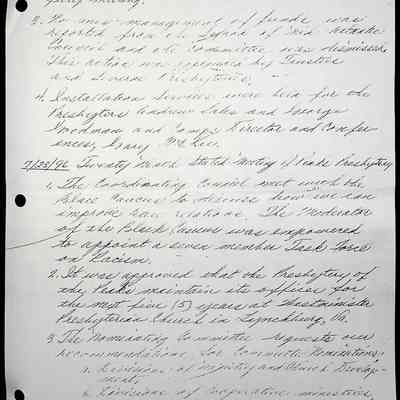 3. The new management of funds was
reported from the Synod of Mid Atlantic
Council and the Committee was dismissed.
This action was approved by Trustees
and Synod Presbyteries.
4. Installation Services were held for the
Presbyters Andrew Sales and George
Goodman and Camps Director and Confer-
ences, Gary McKee.
7/23/96 Twenty Ninth Stated Meeting of Peaks Presbytery
1. The Coordinating Council met with the
Black Caucus to discuss how we can
improve race relations. The Moderator
of the Black Caucus was empowered
to appoint a seven member Task Force
on Racism.
2. It was approved that the Presbytery of
the Peaks maintain its offices for
the next five (5) years at Westminister
Presbyterian Church in Lynchburg, Va.
3. The Nominating Committee requests our
recommendations for Committee Nominations:
a. Divisions of Ministry and Church Develop-
ment,
b. Divisions of Cooperative ministries,